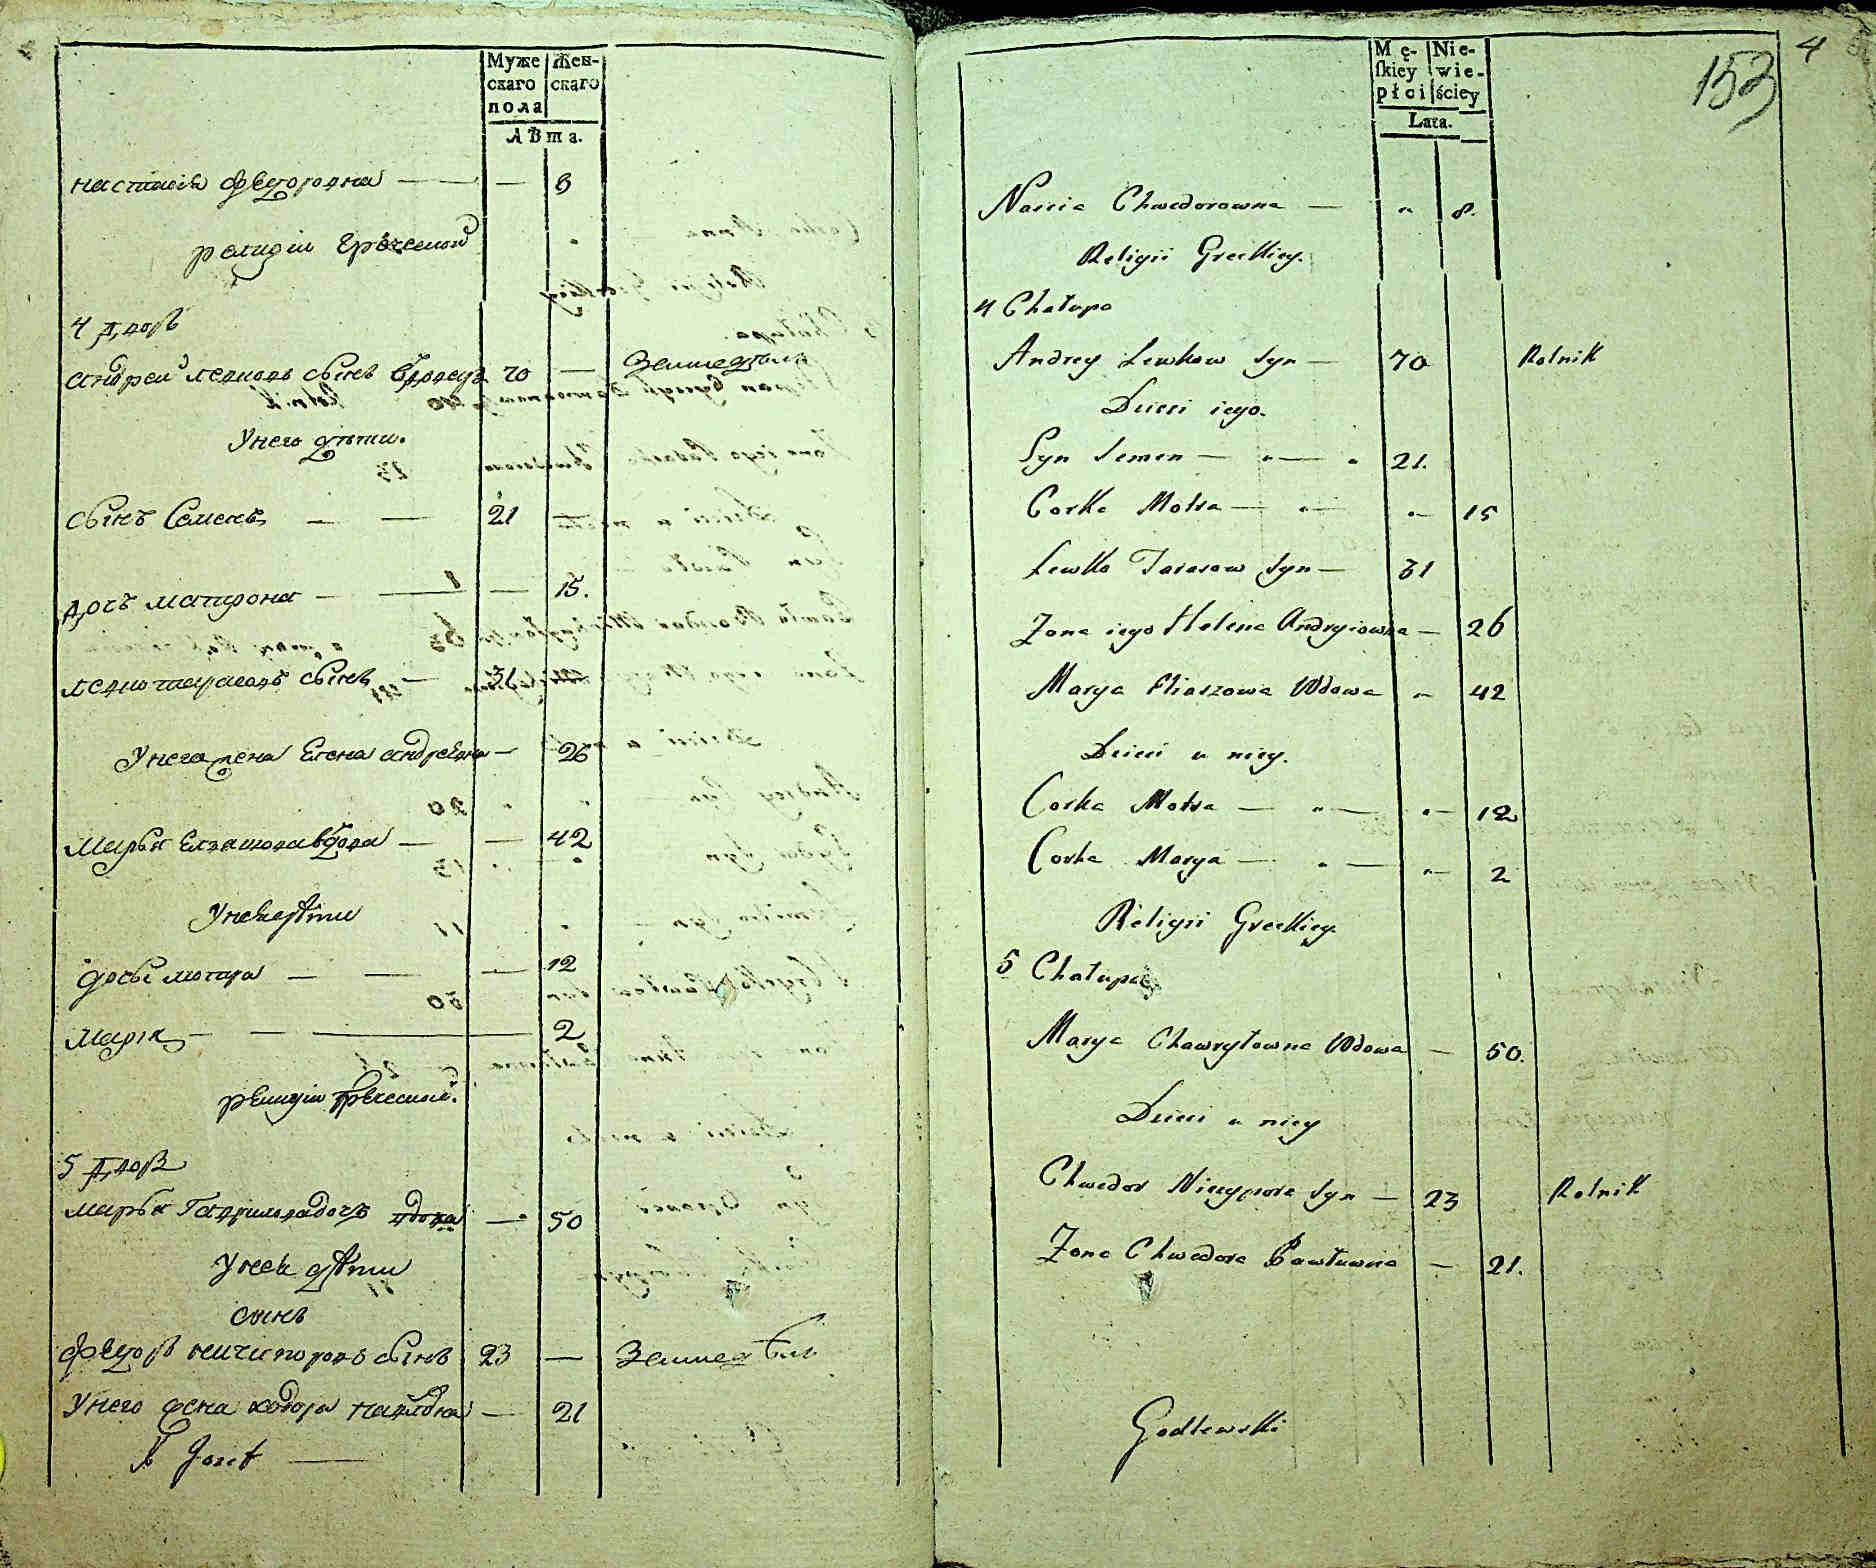 Муже Жен-
скаго скаго
пола
Лѣта.
настасія федоровна — — 8
религіи Греческой
4 Дворъ
андреи левковъ сынъ вдовецъ 70 — Земледѣлъ
Унего дѣти.
сынъ Семенъ — — 21 —
дочъ матрона — — — 15.
левко тарасовъ сынъ — 31
Унего жена Елена андреевна — 26
марья Елиашова вдова — — 42
Унея дѣти
дочь мотра — — — 12
марія — — — 2
религіи греческой.
5 Дворъ
марья Гаврилова дочъ вдова — 50
Унея дѣти
сынъ
федоръ ничипоровъ сынъ 23 — Земледѣлъ
Унего жена ходора павловна — 21
Jozef —
4
153
Mę- Nie-
ſkiey wie-
płci ściey
Lata.
Nascia Chwedorowna — " 8.
Religii Greckiey.
4 Chałupa
Andrey Lewkow syn — 70 Rolnik
Dzieci iego.
Syn Semen — " — " 21.
Corka Motra — " — " — 15
Lewko Tarasow syn — 31
Zona iego Helena Andryiowna — 26
Marya Eliaszowa Wdowa " 42
Dzieci u niey.
Corka Motra — " — " — 12
Corka Marya — " — " — 2
Religii Greckiey
5 Chałupa
Marya Chawryłowna Wdowa — 50.
Dzieci u niey
Chwedor Niczypora syn — 23 Rolnik
Zona Chwedora Pawłowna — 21.
Godlewski